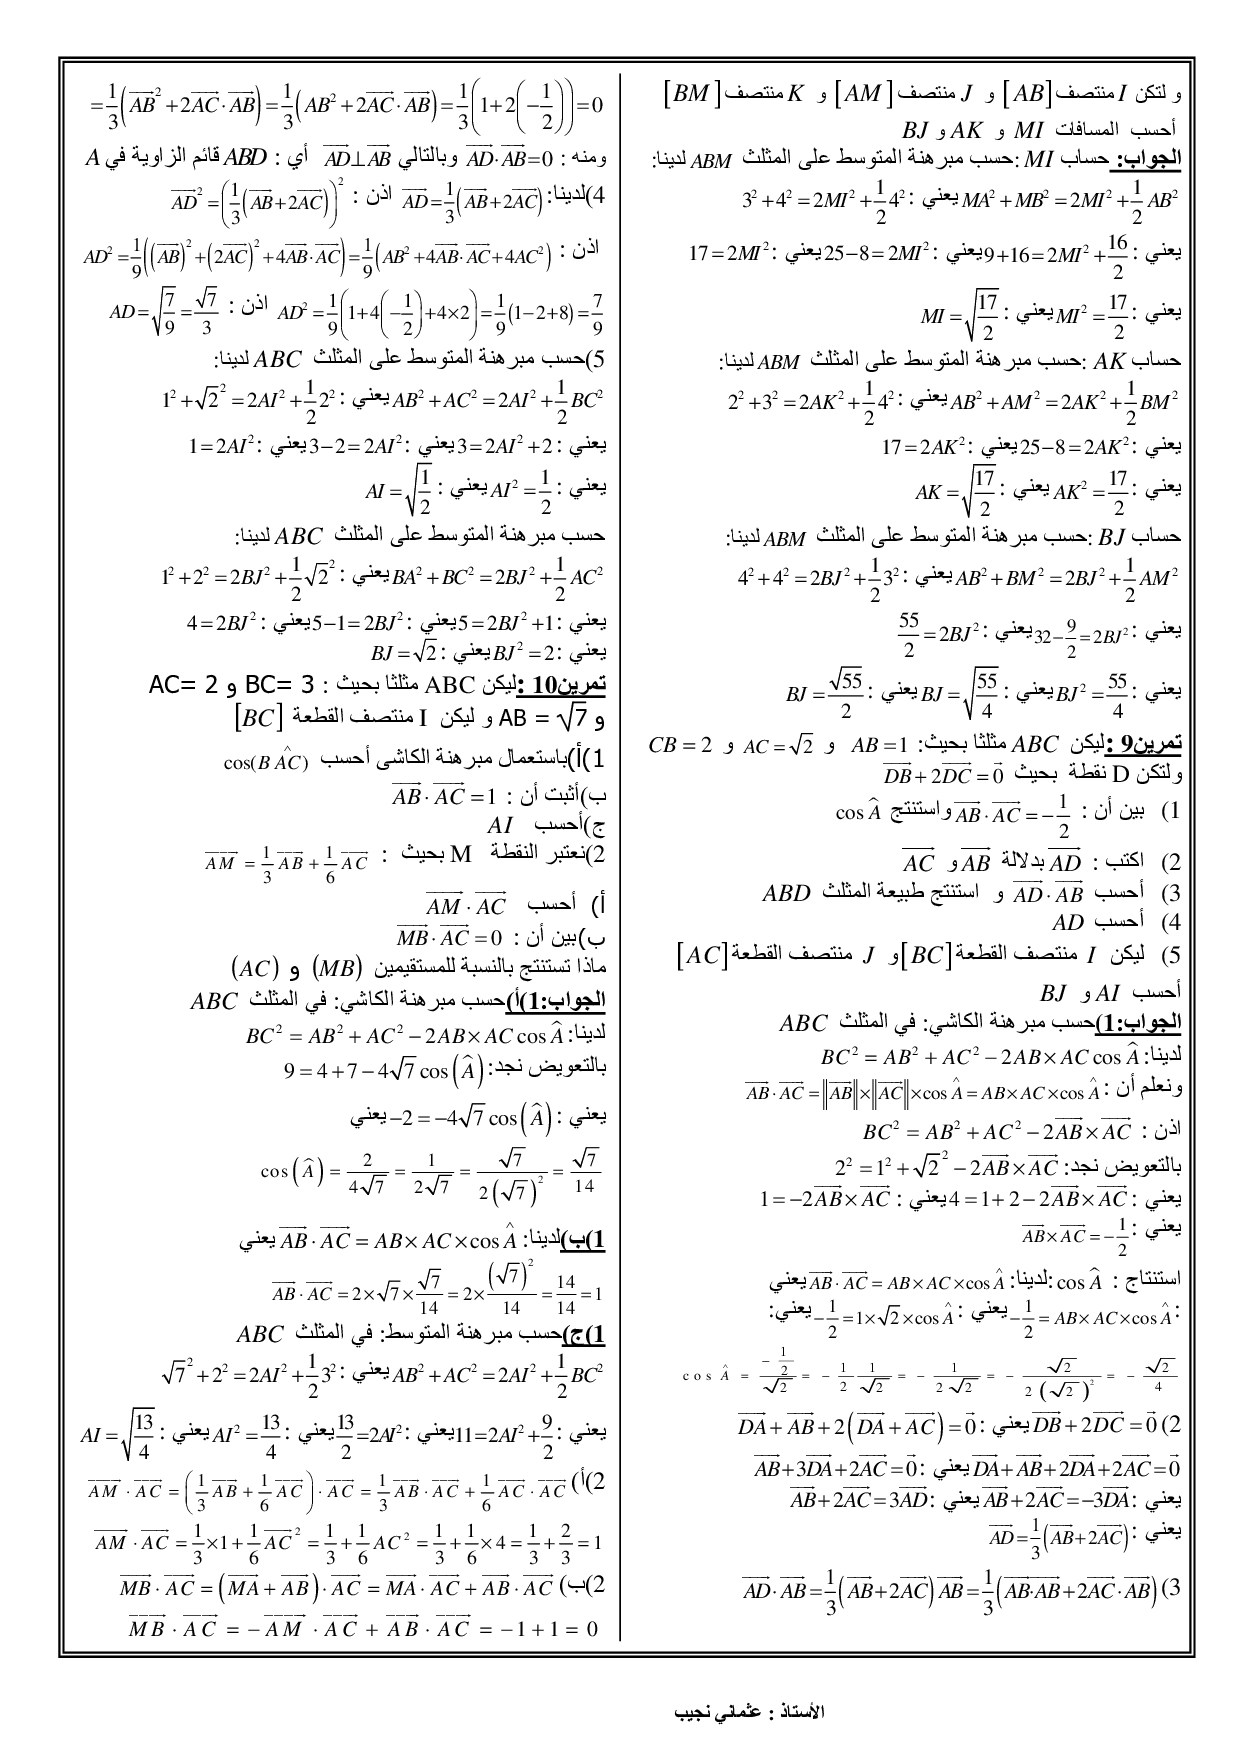 و لتكن I منتصف [AB] و J منتصف [AM] و K منتصف [BM]
أحسب المسافات MI و AK و BJ
الجواب: حساب MI :حسب مبرهنة المتوسط على المثلث ABM لدينا:
MA² + MB² = 2MI² + 1/2 AB² يعني : 3² + 4² = 2MI² + 1/2 4²
يعني : 9+16 = 2MI² + 16/2 يعني : 25−8 = 2MI² يعني : 17 = 2MI²
يعني : MI² = 17/2 يعني : MI = √(17/2)
حساب AK :حسب مبرهنة المتوسط على المثلث ABM لدينا:
AB² + AM² = 2AK² + 1/2 BM² يعني : 2² + 3² = 2AK² + 1/2 4²
يعني : 25−8 = 2AK² يعني : 17 = 2AK²
يعني : AK² = 17/2 يعني : AK = √(17/2)
حساب BJ :حسب مبرهنة المتوسط على المثلث ABM لدينا:
AB² + BM² = 2BJ² + 1/2 AM² يعني : 4² + 4² = 2BJ² + 1/2 3²
يعني : 32 − 9/2 = 2BJ² يعني : 55/2 = 2BJ²
يعني : BJ² = 55/4 يعني : BJ = √(55/4) يعني : BJ = √55/2
تمرين9 :ليكن ABC مثلثا بحيث: AB = 1 و AC = √2 و CB = 2
ولتكن D نقطة بحيث DB⃗ + 2DC⃗ = 0⃗
1) بين أن : AB⃗ · AC⃗ = −1/2 واستنتج cos Â
2) اكتب : AD⃗ بدلالة AB⃗ و AC⃗
3) أحسب AD⃗ · AB⃗ و استنتج طبيعة المثلث ABD
4) أحسب AD
5) ليكن I منتصف القطعة [BC] و J منتصف القطعة [AC]
أحسب AI و BJ
الجواب:1)حسب مبرهنة الكاشي: في المثلث ABC
لدينا: BC² = AB² + AC² − 2AB × AC cos Â
ونعلم أن : AB⃗ · AC⃗ = ‖AB⃗‖ × ‖AC⃗‖ × cos Â = AB × AC × cos Â
اذن : BC² = AB² + AC² − 2AB⃗ × AC⃗
بالتعويض نجد: 2² = 1² + √2² − 2AB⃗ × AC⃗
يعني : 4 = 1 + 2 − 2AB⃗ × AC⃗ يعني : 1 = −2AB⃗ × AC⃗
يعني : AB⃗ × AC⃗ = −1/2
استنتاج : cos Â :لدينا: AB⃗ · AC⃗ = AB × AC × cos Â يعني
: −1/2 = AB × AC × cos Â يعني : −1/2 = 1 × √2 × cos Â يعني:
cos Â = (−1/2)/√2 = −1/2 1/√2 = −1/(2√2) = −√2/(2(√2)²) = −√2/4
2) DB⃗ + 2DC⃗ = 0⃗ يعني : DA⃗ + AB⃗ + 2(DA⃗ + AC⃗) = 0⃗
DA⃗ + AB⃗ + 2DA⃗ + 2AC⃗ = 0⃗ يعني : AB⃗ + 3DA⃗ + 2AC⃗ = 0⃗
يعني : AB⃗ + 2AC⃗ = −3DA⃗ يعني : AB⃗ + 2AC⃗ = 3AD⃗
يعني : AD⃗ = 1/3(AB⃗ + 2AC⃗)
3) AD⃗ · AB⃗ = 1/3(AB⃗ + 2AC⃗)AB⃗ = 1/3(AB⃗·AB⃗ + 2AC⃗ · AB⃗)
= 1/3(AB⃗² + 2AC⃗ · AB⃗) = 1/3(AB² + 2AC⃗ · AB⃗) = 1/3(1 + 2(−1/2)) = 0
ومنه : AD⃗ · AB⃗ = 0 وبالتالي AD⃗ ⊥ AB⃗ أي : ABD قائم الزاوية في A
4)لدينا: AD⃗ = 1/3(AB⃗ + 2AC⃗) اذن : AD⃗² = (1/3(AB⃗ + 2AC⃗))²
اذن : AD² = 1/9((AB⃗)² + (2AC⃗)² + 4AB⃗ · AC⃗) = 1/9(AB² + 4AB⃗ · AC⃗ + 4AC²)
AD² = 1/9(1 + 4(−1/2) + 4×2) = 1/9(1−2+8) = 7/9 اذن : AD = √(7/9) = √7/3
5)حسب مبرهنة المتوسط على المثلث ABC لدينا:
AB² + AC² = 2AI² + 1/2 BC² يعني : 1² + √2² = 2AI² + 1/2 2²
يعني : 3 = 2AI² + 2 يعني : 3−2 = 2AI² يعني : 1 = 2AI²
يعني : AI² = 1/2 يعني : AI = √(1/2)
حسب مبرهنة المتوسط على المثلث ABC لدينا:
BA² + BC² = 2BJ² + 1/2 AC² يعني : 1² + 2² = 2BJ² + 1/2 √2²
يعني : 5 = 2BJ² + 1 يعني : 5−1 = 2BJ² يعني : 4 = 2BJ²
يعني : BJ² = 2 يعني : BJ = √2
تمرين10 :ليكن ABC مثلثا بحيث : BC= 3 و AC= 2
و AB = √7 و ليكن I منتصف القطعة [BC]
1)أ)باستعمال مبرهنة الكاشى أحسب cos(BÂC)
ب)أثبت أن : AB⃗ · AC⃗ = 1
ج)أحسب AI
2)نعتبر النقطة M بحيث : AM⃗ = 1/3 AB⃗ + 1/6 AC⃗
أ) أحسب AM⃗ · AC⃗
ب)بين أن : MB⃗ · AC⃗ = 0
ماذا تستنتج بالنسبة للمستقيمين (MB) و (AC)
الجواب:1)أ)حسب مبرهنة الكاشي: في المثلث ABC
لدينا: BC² = AB² + AC² − 2AB × AC cos Â
بالتعويض نجد: 9 = 4 + 7 − 4√7 cos(Â)
يعني : −2 = −4√7 cos(Â) يعني
cos(Â) = 2/(4√7) = 1/(2√7) = √7/(2(√7)²) = √7/14
1)ب)لدينا: AB⃗ · AC⃗ = AB × AC × cos Â يعني
AB⃗ · AC⃗ = 2 × √7 × √7/14 = 2 × (√7)²/14 = 14/14 = 1
1)ج)حسب مبرهنة المتوسط: في المثلث ABC
AB² + AC² = 2AI² + 1/2 BC² يعني : √7² + 2² = 2AI² + 1/2 3²
يعني : 11 = 2AI² + 9/2 يعني : 13/2 = 2AI² يعني : AI² = 13/4 يعني : AI = √(13/4)
2)أ) AM⃗ · AC⃗ = (1/3 AB⃗ + 1/6 AC⃗) · AC⃗ = 1/3 AB⃗ · AC⃗ + 1/6 AC⃗ · AC⃗
AM⃗ · AC⃗ = 1/3 × 1 + 1/6 AC⃗² = 1/3 + 1/6 AC² = 1/3 + 1/6 × 4 = 1/3 + 2/3 = 1
2)ب) MB⃗ · AC⃗ = (MA⃗ + AB⃗) · AC⃗ = MA⃗ · AC⃗ + AB⃗ · AC⃗
MB⃗ · AC⃗ = −AM⃗ · AC⃗ + AB⃗ · AC⃗ = −1 + 1 = 0
الأستاذ : عثماني نجيب